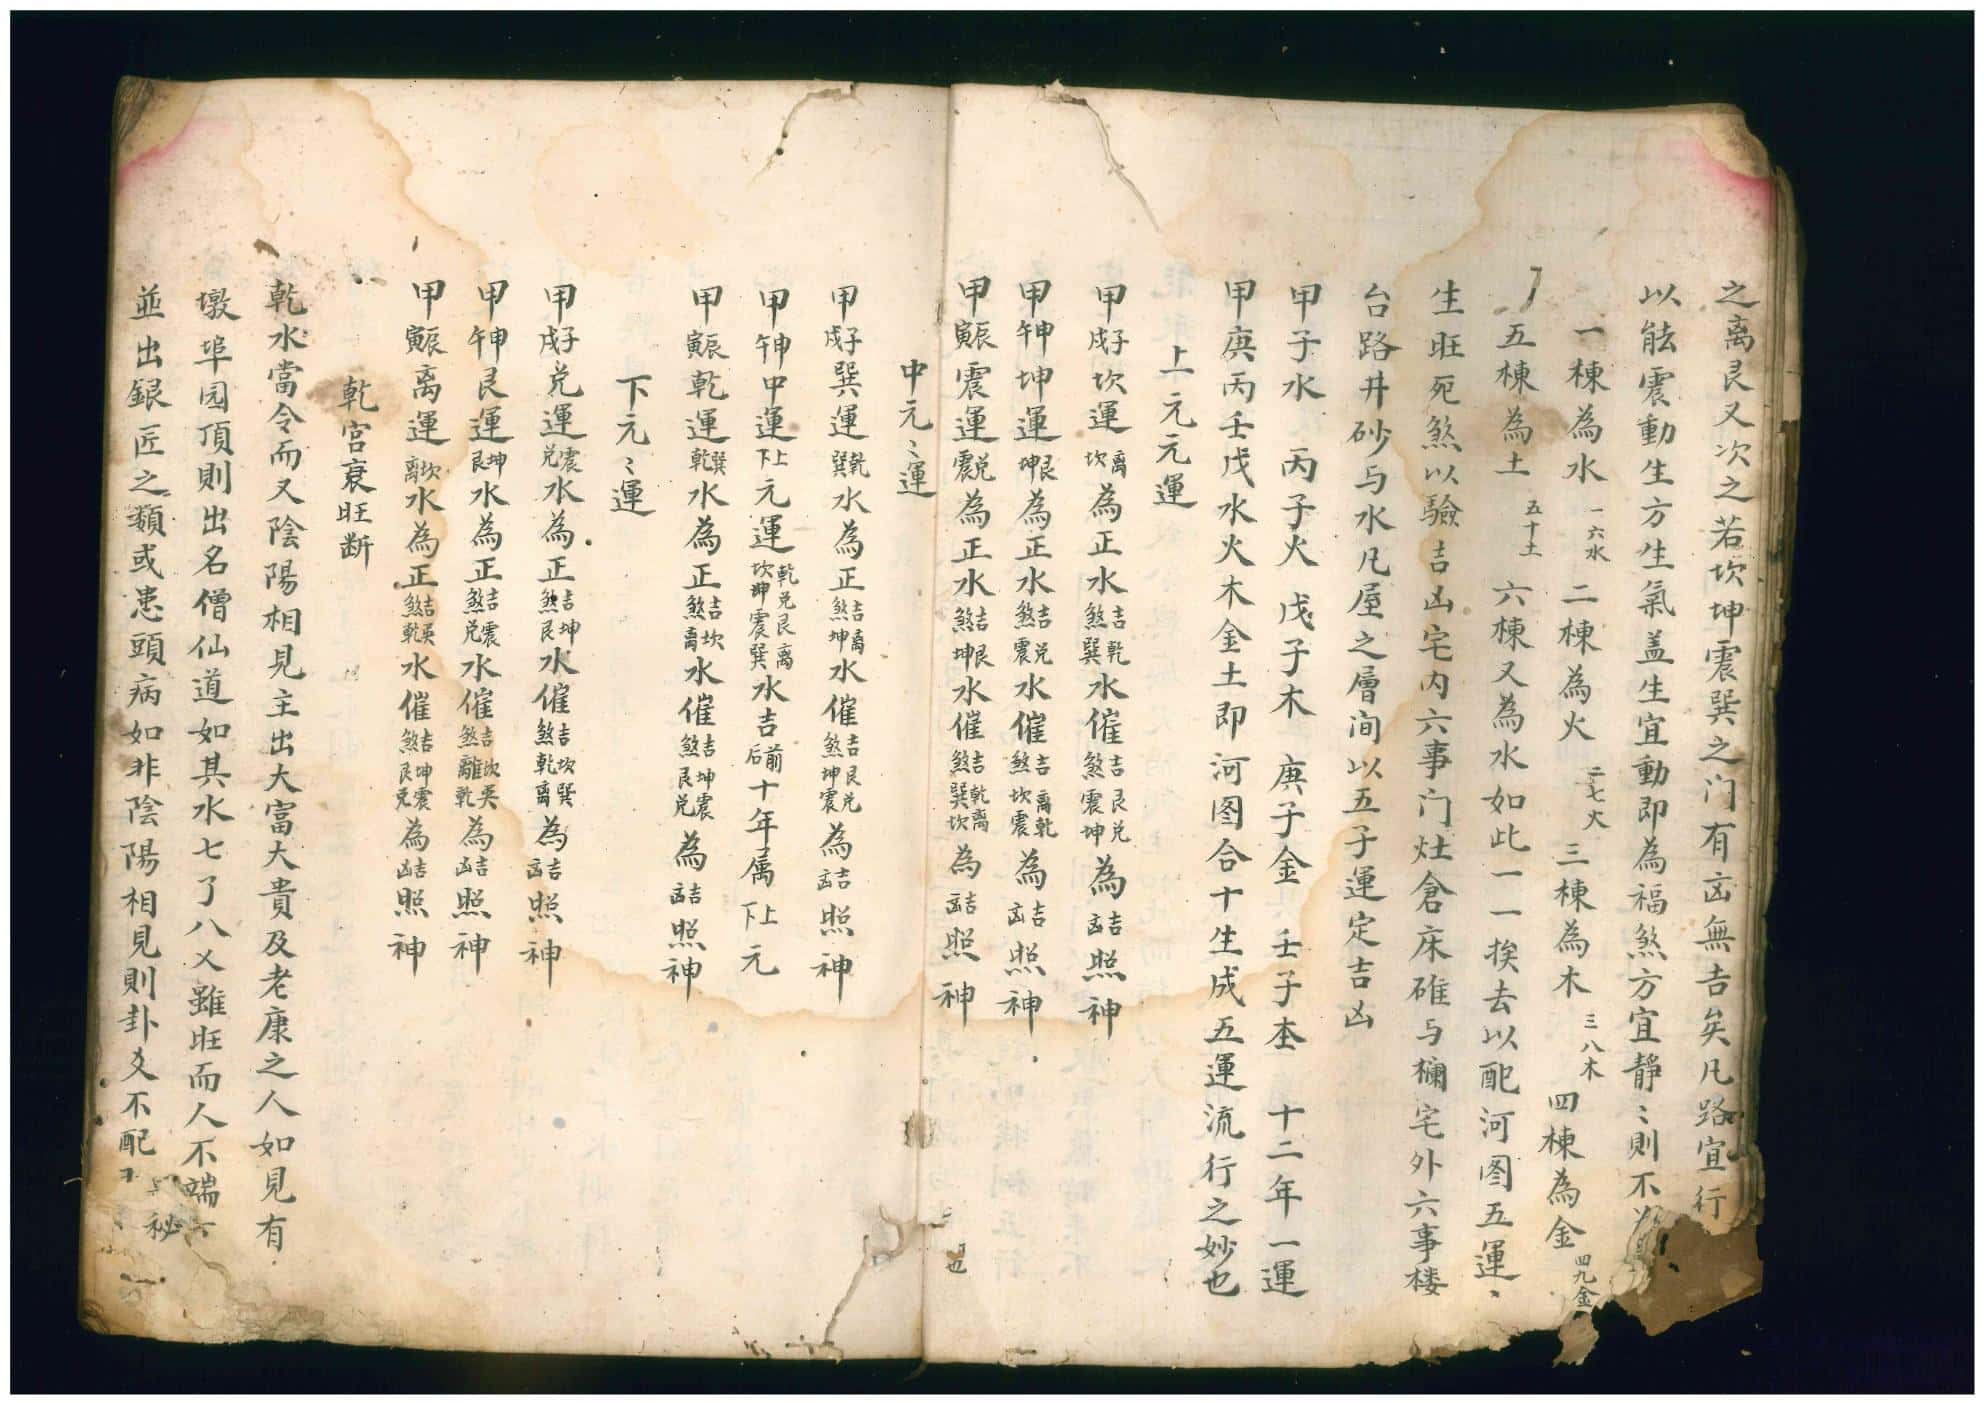 之离艮又次之若坎坤震巽之门有凶無吉矣凡路宜行
以能震動生方生氣盖生宜動即為福煞方宜靜〻則不
一棟為水 一六水 二棟為火 二七火 三棟為木 三八木 四棟為金 四九金
五棟為土 五十土 六棟又為水如此一一挨去以配河图五運、
生旺死煞以驗吉凶宅内六事门灶倉床碓与欄宅外六事楼
台路井砂与水凡屋之層间以五子運定吉凶
甲子水 丙子火 戊子木 庚子金 壬子 十二年一運
甲庚丙壬戊水火木金土即河图合十生成五運流行之妙也
上元元運
甲子戌坎運離坎為正水吉煞乾巽水催吉煞艮兑震坤為吉凶照神
甲申午坤運艮坤為正水吉煞兑震水催吉煞離乾坎震為吉凶照神
甲辰寅震運兑震為正水吉煞艮坤水催吉煞乾離巽坎為吉凶照神
也
中元〻運
甲子戌巽運乾巽水為正吉煞離坤水催吉煞艮兑坤震為吉凶照神
甲申午中運上下元運乾兑艮離坎坤震巽水吉前后十年属上下元
甲辰寅乾運巽乾水為正吉煞坎离水催吉煞坤震艮兑為吉凶照神
下元〻運
甲子戌兑運震兑水為正吉煞坤艮水催吉煞坎巽乾离為吉凶照神
甲申午艮運坤艮水為正吉煞震兑水催吉煞坎巽離乾為吉凶照神
甲辰寅离運坎離水為正吉煞巽乾水催吉煞坤震艮兑為吉凶照神
乾宫衰旺断
乾水當令而又陰陽相見主出大富大貴及老康之人如見有
墩埠园頂則出名僧仙道如其水七了八乂雖旺而人不端
並出銀匠之類或患頭病如非陰陽相見則卦爻不配 秘